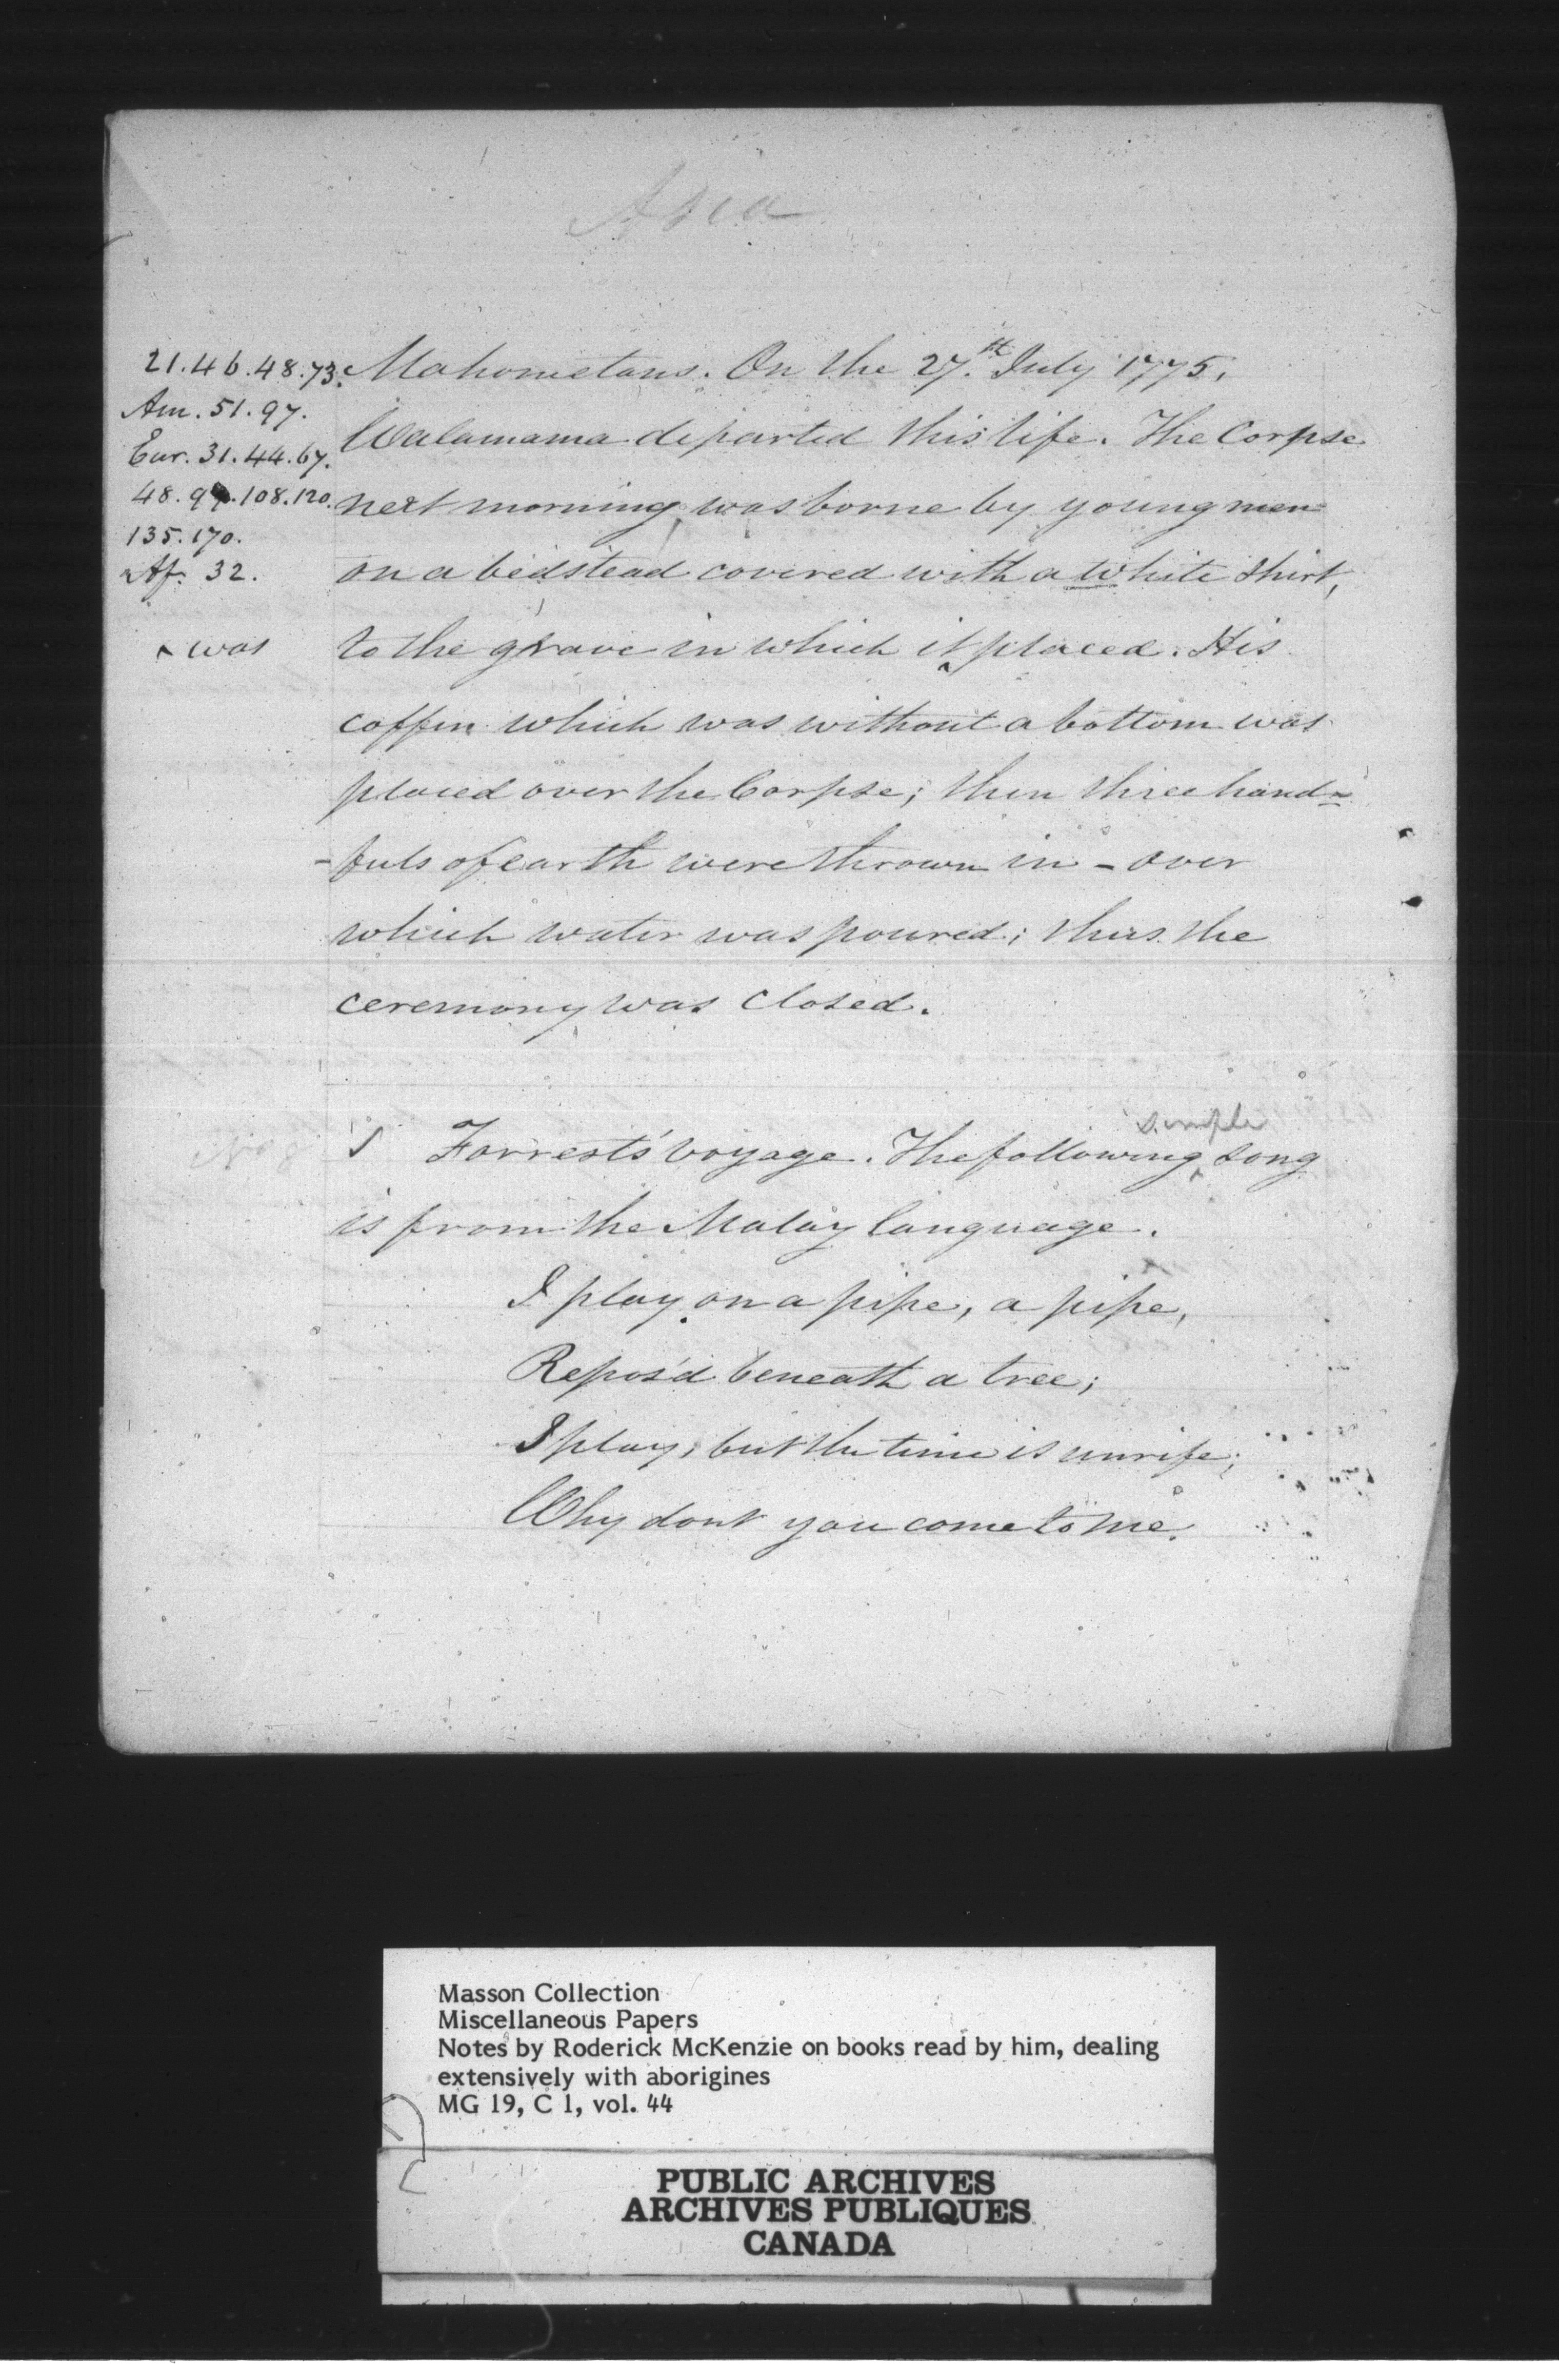 Asia
21.46.48.73.
Am. 51.97.
Eur. 31.44.67.
48.97.108.120.
135.170.
Af. 32.
^ was
Mahometans. On the 27.th July 1775,
Walamama departed this life. The Corpse
next morning was borne by young men
on a bedstead covered with a white shirt,
to the grave in which it ^ placed. His
coffin which was without a bottom was
placed over the Corpse; then three hand-
-fuls of earth were thrown in - over
which water was poured; thus the
ceremony was closed.
No 8
Forrest's voyage. The following ^ simple song
is from the Malay language.
I play on a pipe, a pipe,
Repos'd beneath a tree;
I play, but the time is unripe;
Why dont you come to me.
Masson Collection
Miscellaneous Papers
Notes by Roderick McKenzie on books read by him, dealing
extensively with aborigines
MG 19, C 1, vol. 44
PUBLIC ARCHIVES
ARCHIVES PUBLIQUES
CANADA